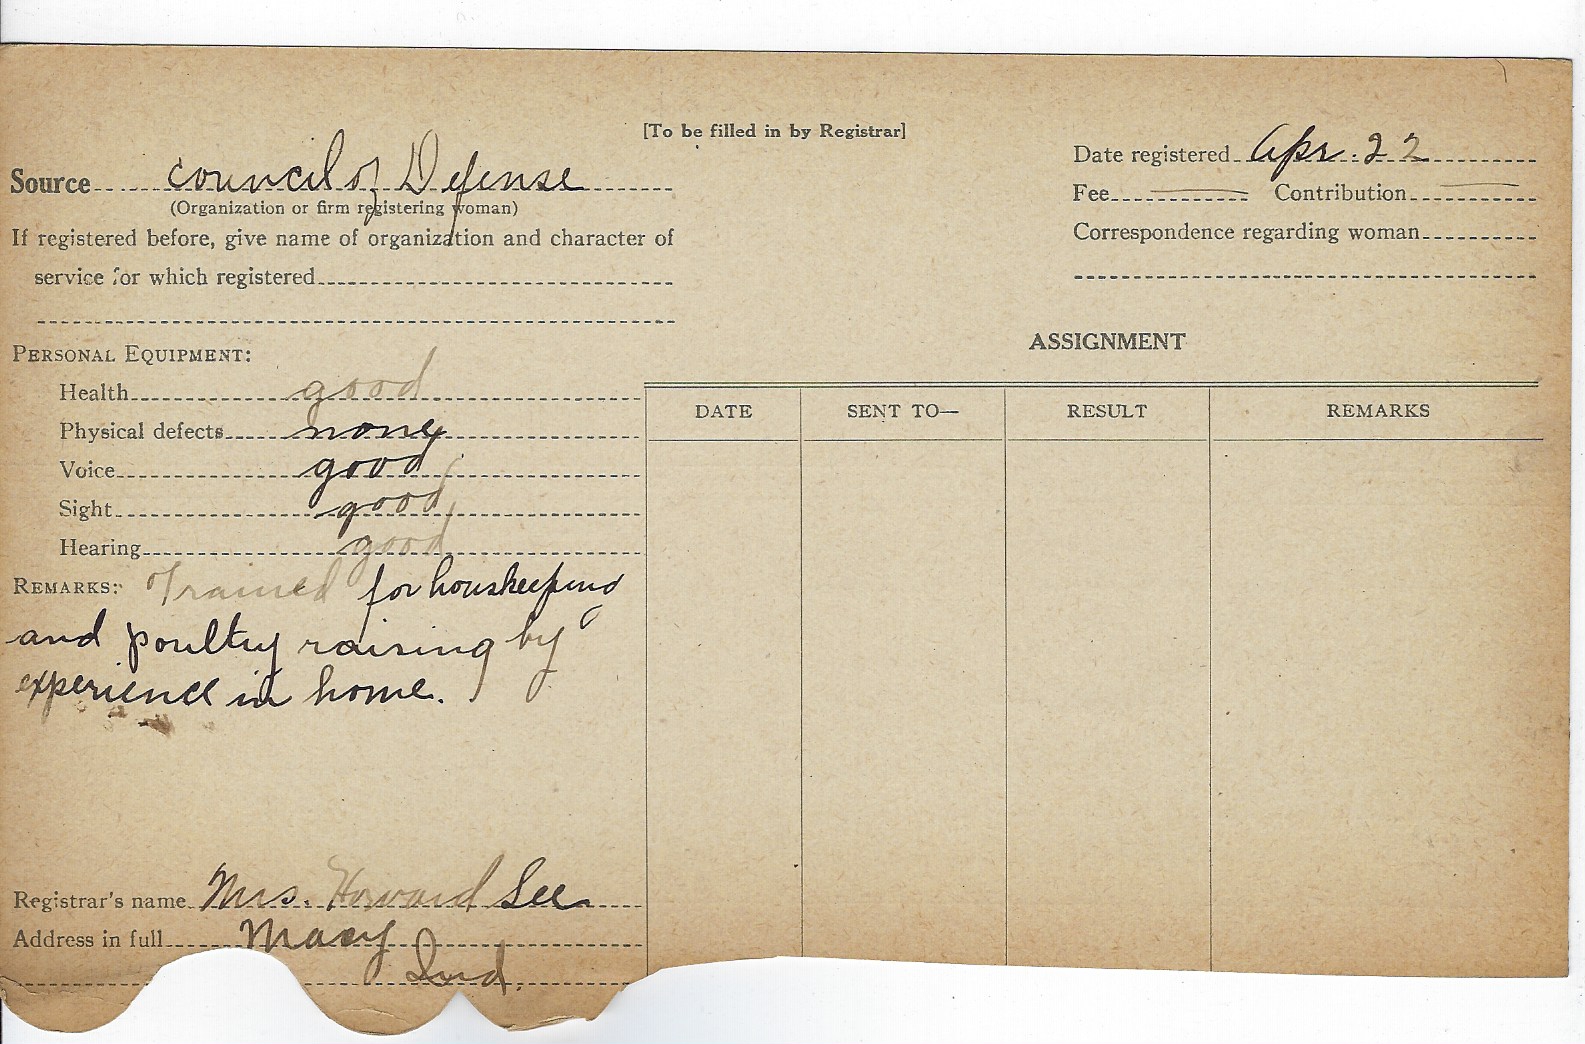 [To be filled in by Registrar]
Source council of Defense
(Organization or firm registering woman)
If registered before, give name of organization and character of
service for which registered
Date registered Apr. 22
Fee Contribution
Correspondence regarding woman
PERSONAL EQUIPMENT:
Health good
Physical defects none
Voice good
Sight good
Hearing good
REMARKS: Trained for houskeeping
and poultry raising by
experience in home.
Registrar's name Mrs. Howard See
Address in full Macy
Ind.
ASSIGNMENT
DATE SENT TO— RESULT REMARKS